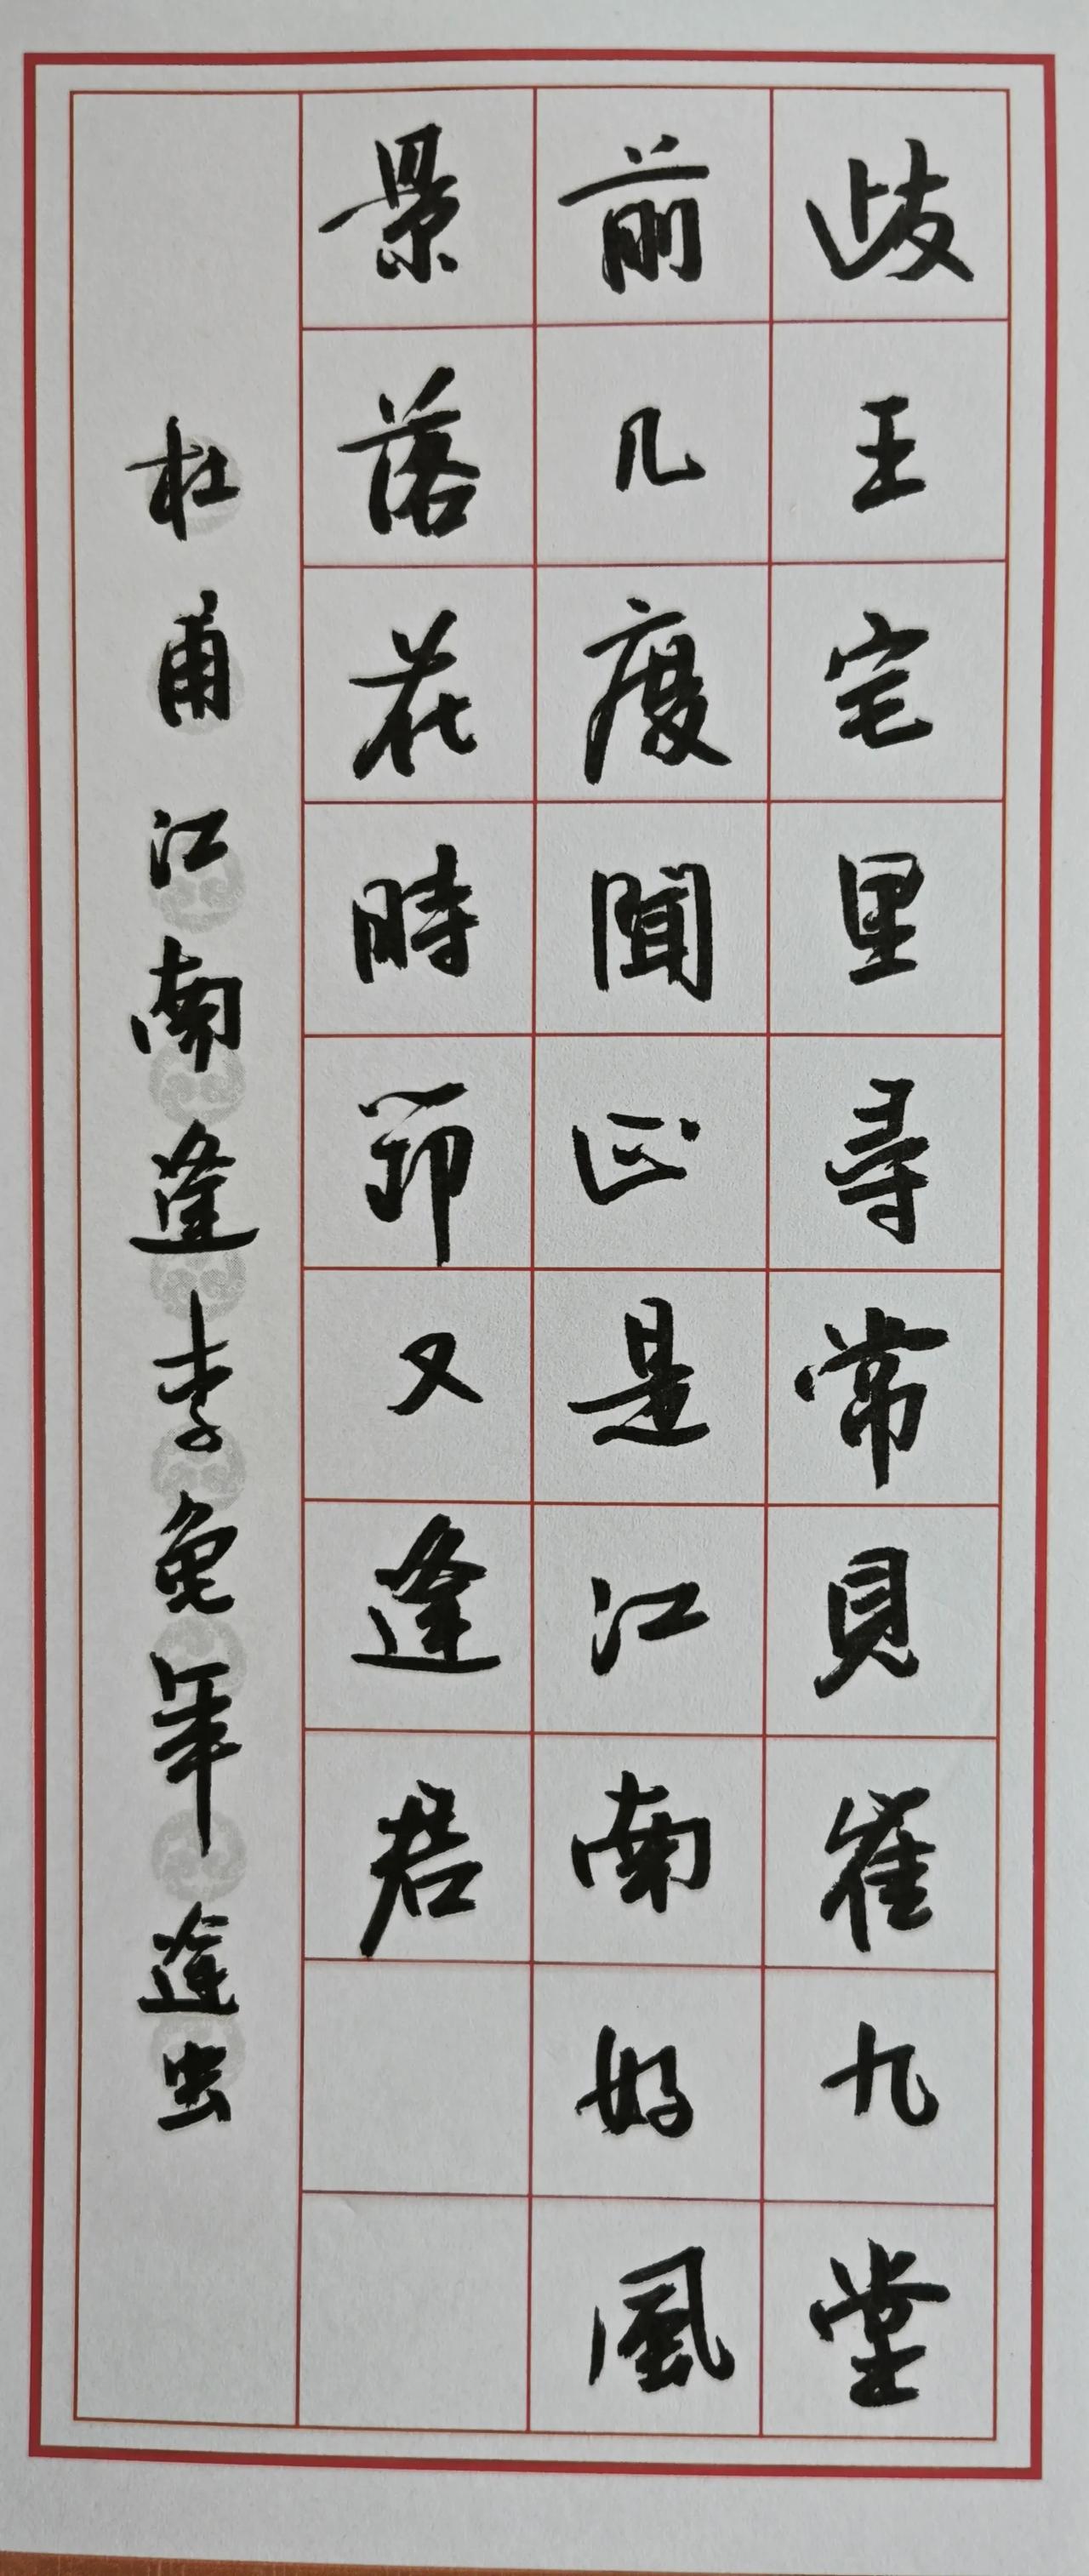 歧王宅里尋常見崔九堂
前几度聞正是江南好風
景落花時節又逢君
杜甫江南逢李龟年 虫